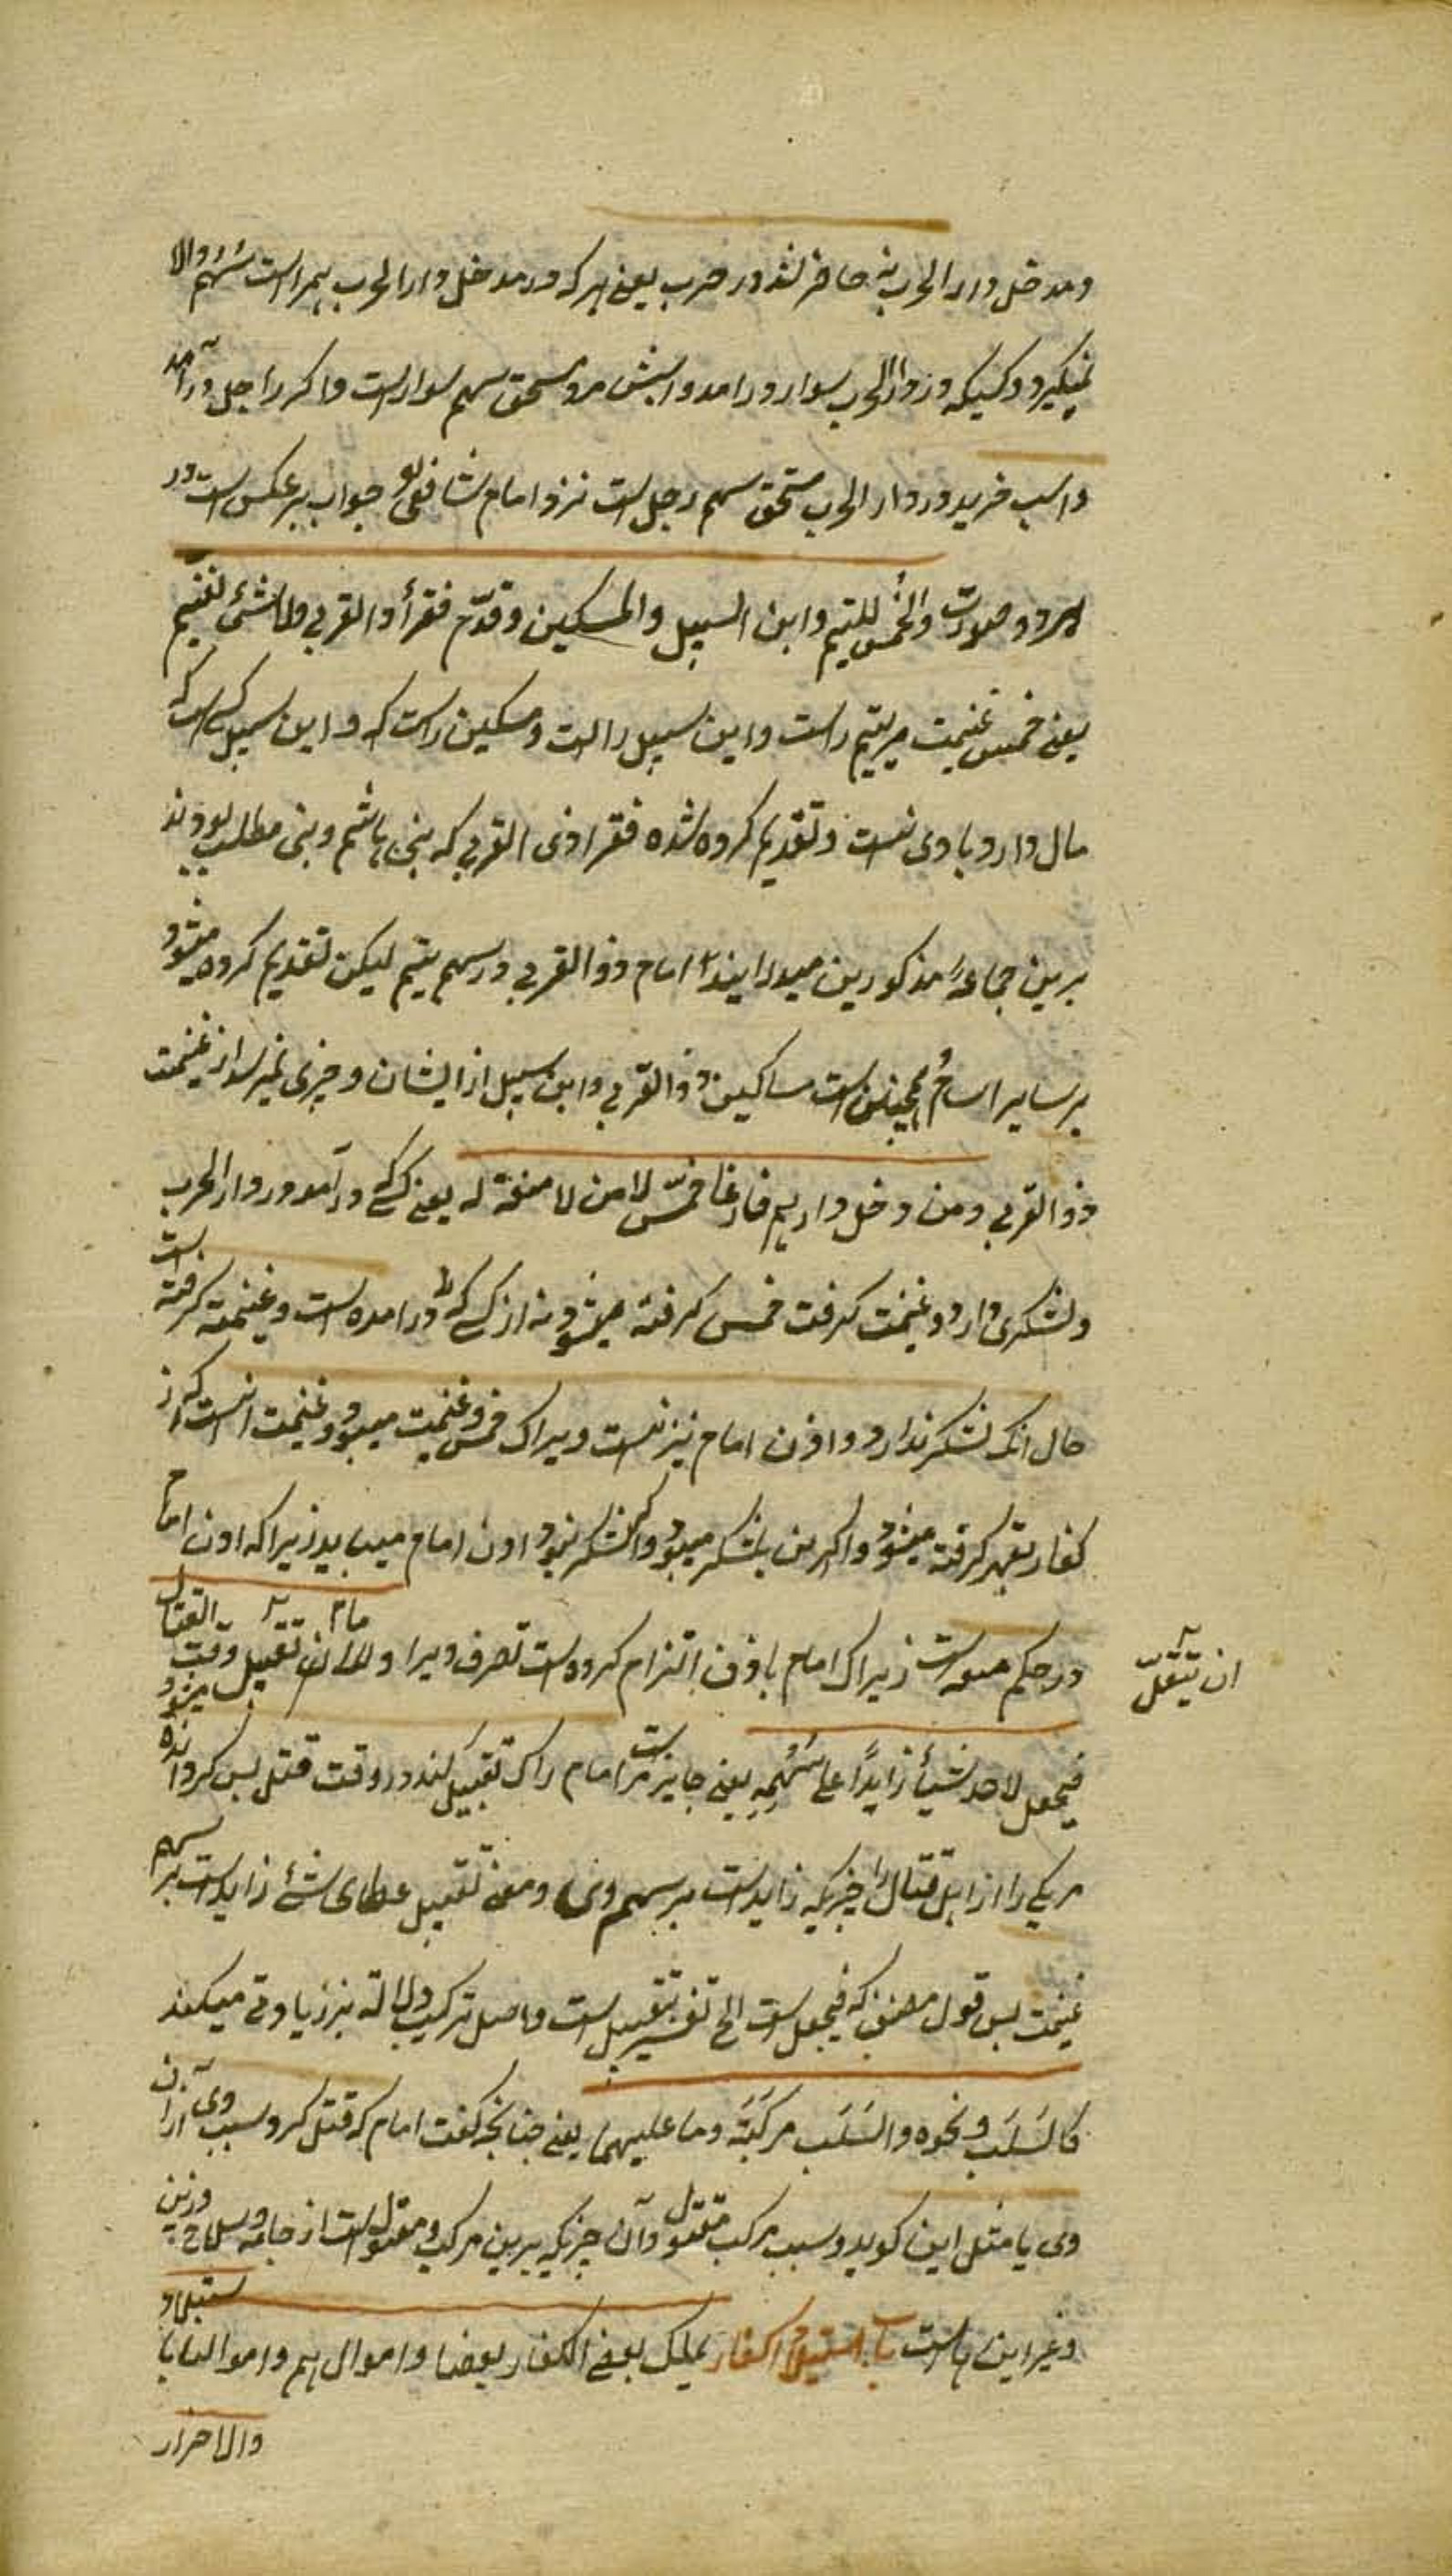 و مدخل دار الحرب نه حاضر شد در حرب یعنی هر که در مدخل دار الحرب همراست سهم والا
نمیگیرد و کسیکه در دار الحرب سوار درامد و اسپش مرد مستحق سهم سوار است و اگر راجل درآمد
و اسپ خرید در دار الحرب مستحق سهم رجل است نزد امام شافعی جواب بر عکس است در
هر دو صورت والخمس للیتیم وابن السبیل والمسکین وقدم فقراء ذو القربی ولا شئ لغنیهم
یعنی خمس غنیمت مر یتیم راست وابن سبیل راست ومسکین راست که و ابن سبیل کسی است که
مال دارد با وی نیست و تقدیم کرده شده فقرا ذی القربی که بنی هاشم و بنی مطلب بودند
برین جماعهٔ مذکورین میدرایند امام ذو القربی در سهم یتیم لیکن تقدیم کرده میشود
بر سایر اسام همچنین است مساکین ذو القربی وابن سبیل از ایشان و چیزی نمیرسد از غنیمت
ذو القربی ومن دخل دارهم فاغار خمس الا من لا منعة له یعنی کسی که درآمد در دار الحرب
ولشکری دارد وغنیمت گرفت خمس گرفته میشود نه از کسی که درامده است وغنیمت گرفته است
حال انکه لشکر ندارد و اذن امام نیز نیست ویراک خمس وغنیمت میبود وغنیمت انست که از
کفار بقهر گرفته میشود واگر من بلشکر میبود واگر لشکر نبود اذن امام میباید زیراکه اذن امام
در حکم منعه است زیراک امام باذن التزام کرده است نصرت ویرا وللامام ان ینفل وقت القتال
ان ینفل
فیجعل لاحد شیئا زایدا علی سهمه یعنی جایز است مر امام راک تنفیل کند در وقت قتل پس گرداند
مر یکی را از اهل قتال را چیزیکه زاید است بر سهم وی ومعنی تنفیل عطای شئ زاید است بر سهم
غنیمت پس قول مصنف که فیجعل است الخ تفسیر تنفیل است واصل ترکیب دلالة بر زیادتی میکند
کالسلب ونحوه والسلب مرکبه وما علیهما یعنی چنانچه گفت امام که قتل کرد سلب وی از آن
وی یا مثل این گوید وسلب مرکب مقتول وآن چیزیکه برین مرکب ومقتول است از جامه وسلاح وزین
وغیر این هاست باب استیلاء الکفار یملک بعض الکفار بعضا واموالهم واموالنا باستیلاء
والاحرار